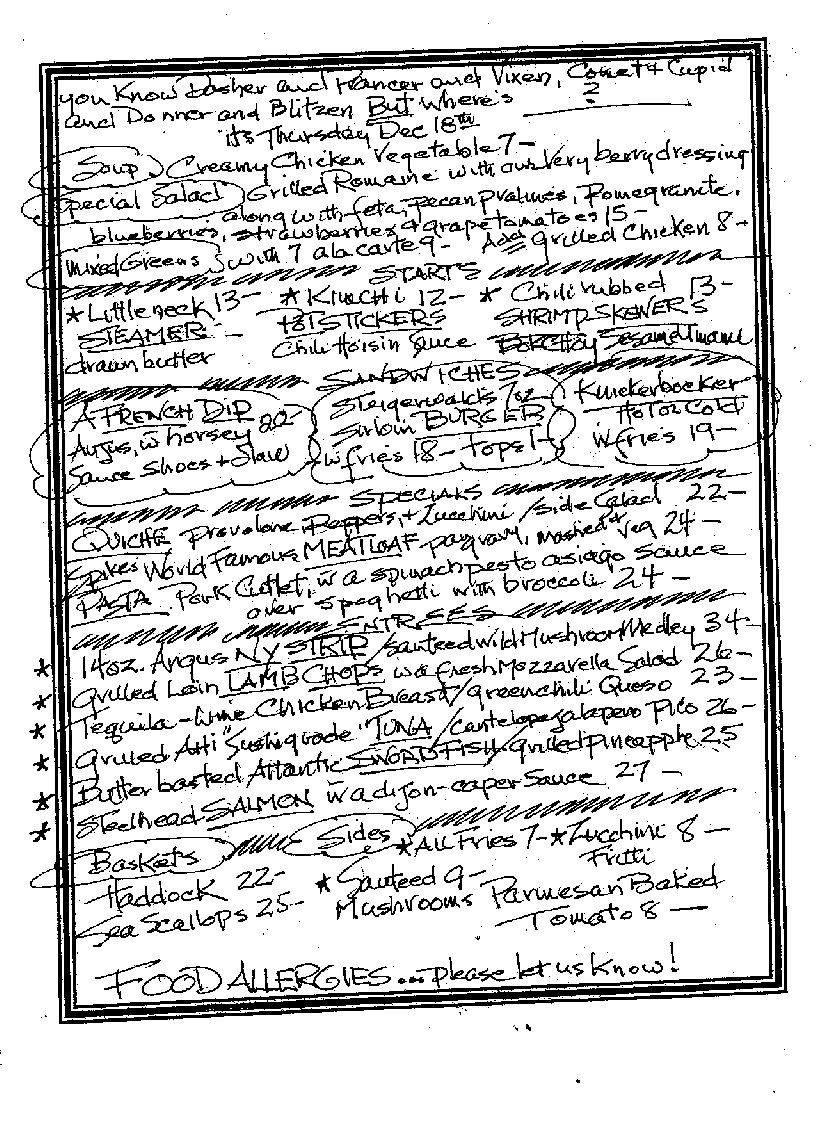 you Know Dasher and Prancer and Vixen, Comet & Cupid
and Donner and Blitzen But where's ?
it's Thursday Dec 18th
Soup Creamy Chicken Vegetable 7-
Special Salad Grilled Romaine with our Very berry dressing
along with feta, pecan pralines, Pomegranite,
blueberries, strawberries & grape tomatoes 15-
Mixed Greens with 7 a la carte 9- Add grilled Chicken 8-
STARTS
* Littleneck 13- * KIMCHI 12- * Chili rubbed 13-
STEAMER - POTSTICKERS SHRIMP SKEWER'S
drawn butter Chili Hoisin Sauce Sesame
SANDWICHES
A FRENCH DIP Steigerwald's 7oz Knickerbocker
Angus, w horsey 20- Sirloin BURGER Hot or Cold
Sauce Shoes + Slaw w fries 18- tops 1- w fries 19-
SPECIALS
QUICHE Provolone, Peppers, + Zucchini /side Salad 22-
Spikes World Famous MEATLOAF pan gravy, mashed + Veg 24-
PASTA Pork Cutlet, w a spinach pesto asiago Sauce
over spaghetti with broccoli 24-
ENTREES
* 14oz. Angus NY STRIP /Sauteed Wild Mushroom Medley 34-
* Grilled Loin LAMB CHOPS w a fresh Mozzarella Salad 26-
* Tequila-Lime Chicken Breast/greenchili Queso 23-
* Grilled Ahi "Sushi grade" TUNA/Cantelope jalapeno Pico 26-
* Butter basted Atlantic SWORDFISH/grilled pineapple 25
* Steelhead SALMON w a dijon-caper Sauce 27-
Baskets Sides * All Fries 7- * Zucchini 8-
Haddock 22- * Sauteed 9- Fritti
Sea Scallops 25- Mushrooms Parmesan Baked
Tomato 8-
FOOD ALLERGIES... please let us Know!